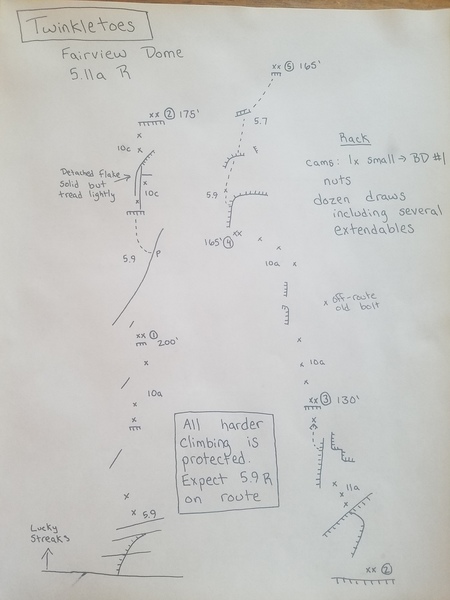 Twinkletoes
Fairview Dome
5.11a R
xx ② 175'
x
x
10c
Detached Flake
solid but
tread lightly
x
x
10c
5.9
P
xx ①
200'
x
10a
x
x
x
x
5.9
Lucky
Streaks
All harder
climbing is
protected.
Expect 5.9 R
on route
xx ⑤ 165'
5.7
5.9
xx
165' ④
x
x
10a
x
x off-route
old bolt
x
x
10a
x
xx ③ 130'
x
x
x
11a
x
xx ②
Rack
cams: 1x small → BD #1
nuts
dozen draws
including several
extendables